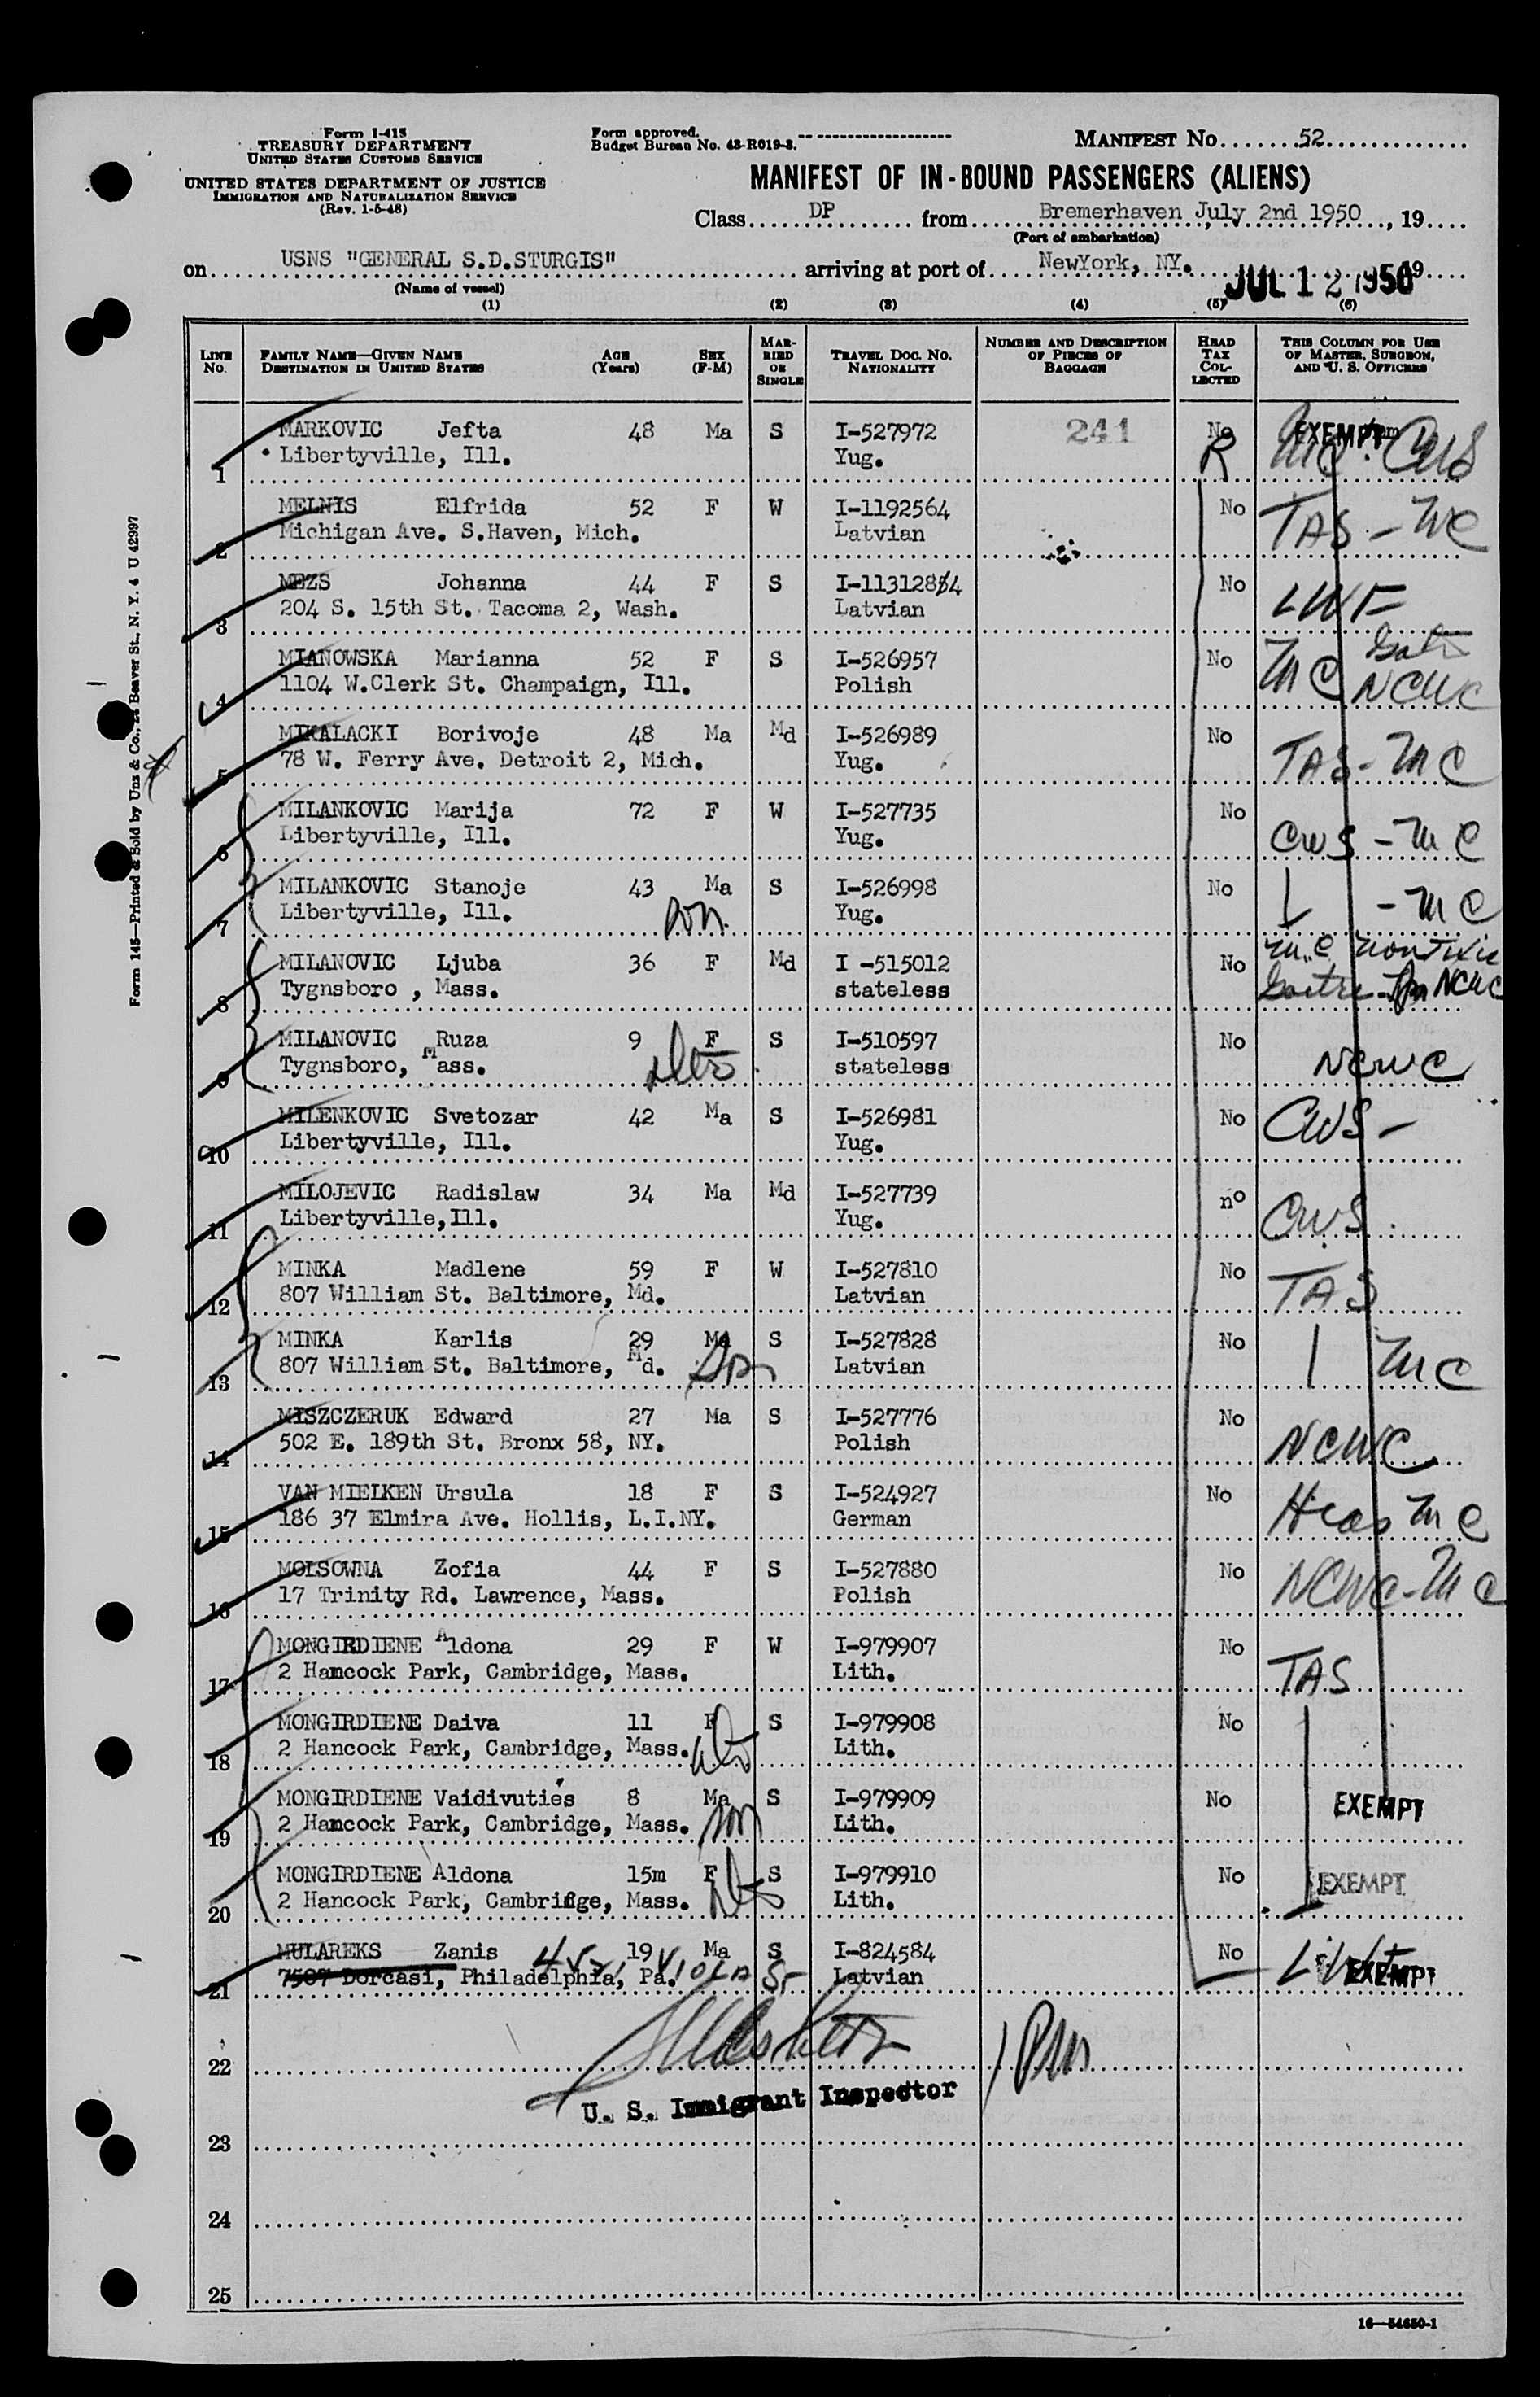 Form I-415
TREASURY DEPARTMENT
UNITED STATES CUSTOMS SERVICE
UNITED STATES DEPARTMENT OF JUSTICE
IMMIGRATION AND NATURALIZATION SERVICE
(Rev. 1-5-48)
Form approved.
Budget Bureau No. 43-R019-3.
MANIFEST No. 52
MANIFEST OF IN-BOUND PASSENGERS (ALIENS)
Class DP from Bremerhaven July 2nd 1950, 19
(Port of embarkation)
on USNS "GENERAL S.D.STURGIS" arriving at port of NewYork, NY. JUL 12 1950 19
(Name of vessel)
(1) (2) (3) (4) (5) (6)
LINE No. FAMILY NAME—GIVEN NAME DESTINATION IN UNITED STATES AGE (Years) SEX (F-M) MARRIED OR SINGLE TRAVEL DOC. NO. NATIONALITY NUMBER AND DESCRIPTION OF PIECES OF BAGGAGE HEAD TAX COLLECTED THIS COLUMN FOR USE OF MASTER, SURGEON, AND U. S. OFFICERS
1 MARKOVIC Jefta 48 Ma S I-527972 241 No R EXEMPT MC CWS
Libertyville, Ill. Yug.
2 MELNIS Elfrida 52 F W I-1192564 No TAS - MC
Michigan Ave. S.Haven, Mich. Latvian
3 MEZS Johanna 44 F S I-1131284 No LWF
204 S. 15th St. Tacoma 2, Wash. Latvian
4 MIANOWSKA Marianna 52 F S I-526957 No MC NCWC
1104 W.Clerk St. Champaign, Ill. Polish
5 MIKALACKI Borivoje 48 Ma Md I-526989 No TAS - MC
78 W. Ferry Ave. Detroit 2, Mich. Yug.
6 MILANKOVIC Marija 72 F W I-527735 No CWS - MC
Libertyville, Ill. Yug.
7 MILANKOVIC Stanoje 43 Ma S I-526998 No - MC
Libertyville, Ill. son Yug.
8 MILANOVIC Ljuba 36 F Md I -515012 No MC nontoxic
Tygnsboro , Mass. stateless NCWC
9 MILANOVIC Ruza 9 F S I-510597 No NCWC
Tygnsboro, Mass. stateless
10 MILENKOVIC Svetozar 42 Ma S I-526981 No CWS -
Libertyville, Ill. Yug.
11 MILOJEVIC Radislaw 34 Ma Md I-527739 no CWS
Libertyville,Ill. Yug.
12 MINKA Madlene 59 F W I-527810 No TAS
807 William St. Baltimore, Md. Latvian
13 MINKA Karlis 29 Ma S I-527828 No MC
807 William St. Baltimore, Md. son Latvian
14 MISZCZERUK Edward 27 Ma S I-527776 No NCWC
502 E. 189th St. Bronx 58, NY. Polish
15 VAN MIELKEN Ursula 18 F S I-524927 No Hias MC
186 37 Elmira Ave. Hollis, L.I.NY. German
16 MOLSOWNA Zofia 44 F S I-527880 No NCWC - MC
17 Trinity Rd. Lawrence, Mass. Polish
17 MONGIRDIENE Aldona 29 F W I-979907 No TAS
2 Hancock Park, Cambridge, Mass. Lith.
18 MONGIRDIENE Daiva 11 F S I-979908 No
2 Hancock Park, Cambridge, Mass. Lith.
19 MONGIRDIENE Vaidivuties 8 Ma S I-979909 No EXEMPT
2 Hancock Park, Cambridge, Mass. son Lith.
20 MONGIRDIENE Aldona 15m F S I-979910 No EXEMPT
2 Hancock Park, Cambridge, Mass. Lith.
21 MULAREKS Zanis 19 Ma S I-824584 No EXEMPT
7507 Dorcasi, Philadelphia, Pa. Viola St Latvian
22
U. S. Immigrant Inspector
23
24
25
16—54650-1
Form 145—Printed & Sold by Unz & Co., 24 Beaver St., N. Y. 4 U 42997